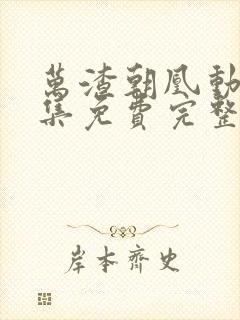 萬渣朝凰動
集免費完整
岸本齊史